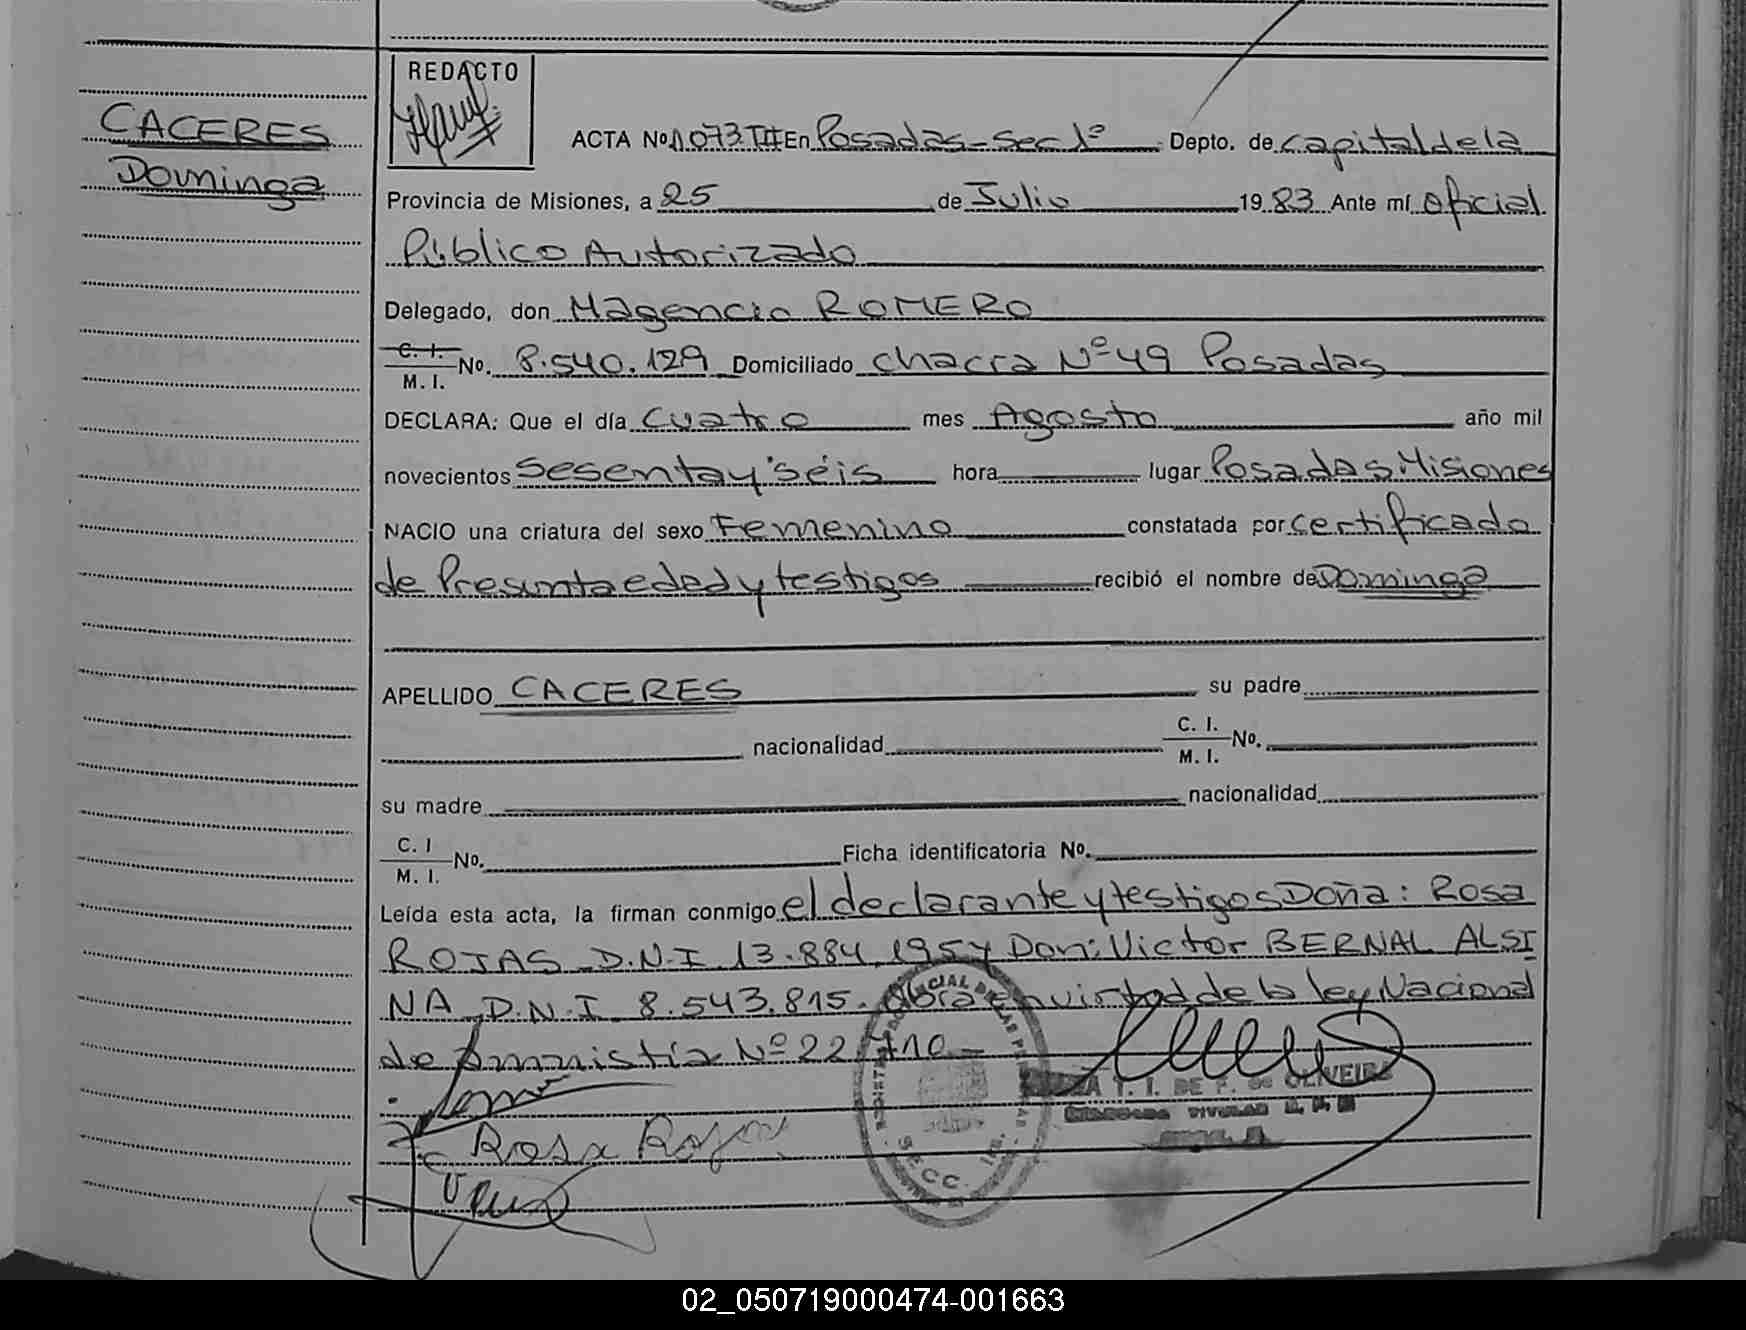 CACERES
Dominga
REDACTO
ACTA No. 1073 TII En Posadas - Sec 1ª Depto. de capital de la
Provincia de Misiones, a 25 de Julio 1983 Ante mí oficial
Público Autorizado
Delegado, don Magencio ROMERO
C. I. / M. I. No. 8.540.129 Domiciliado chacra Nº 49 Posadas
DECLARA: Que el día cuatro mes Agosto año mil
novecientos Sesenta y séis hora lugar Posadas Misiones
NACIO una criatura del sexo Femenino constatada por certificado
de Presunta edad y testigos recibió el nombre de Dominga
APELLIDO CACERES su padre
nacionalidad C. I. / M. I. No.
su madre nacionalidad
C. I / M. I. No. Ficha identificatoria No.
Leída esta acta, la firman conmigo el declarante y testigos Doña: Rosa
ROJAS D.N.I 13.884.195 y Don: Victor BERNAL ALSI
NA D.N.I 8.543.815. Obra en virtud de la ley Nacional
de Amnistía Nº 22.410 -
DE OLIVEIRA
TITULAR
Rosa Rojas
SECC. 1ra.
02_050719000474-001663